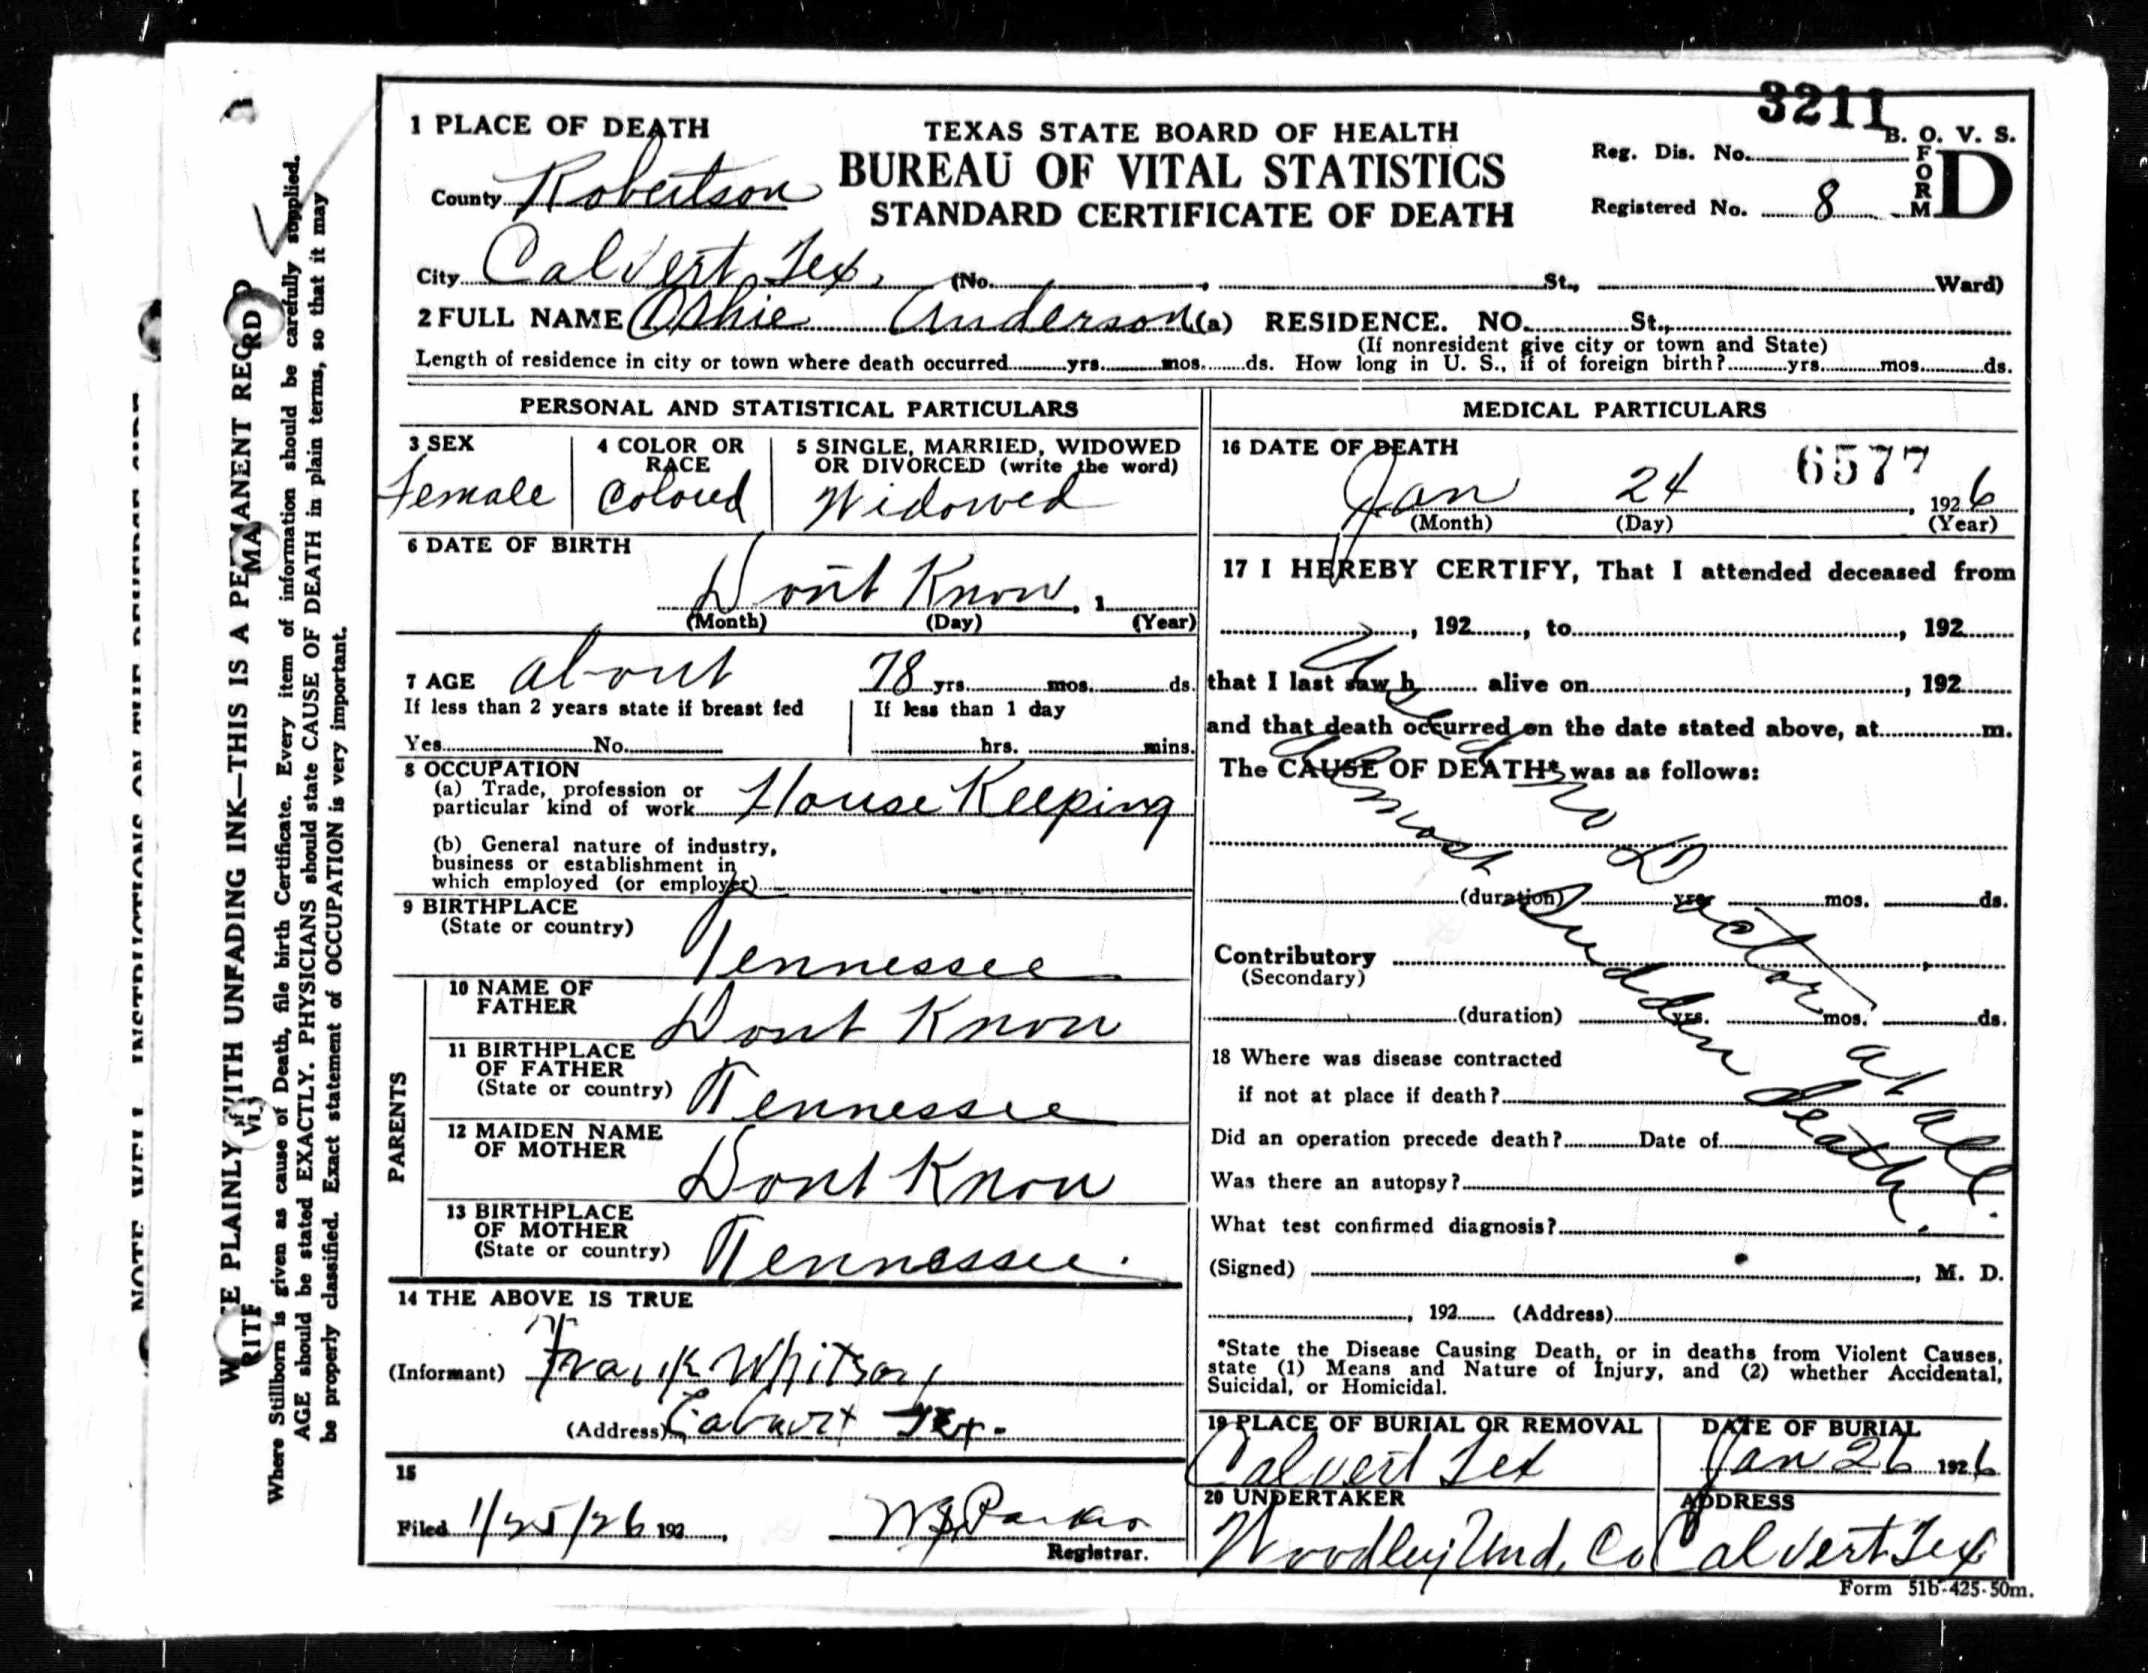 3211
1 PLACE OF DEATH
TEXAS STATE BOARD OF HEALTH
B. O. V. S.
BUREAU OF VITAL STATISTICS
STANDARD CERTIFICATE OF DEATH
Reg. Dis. No.
FORM D
Registered No. 8
County Robertson
City Calvert, Tex. (No. , St., Ward)
2 FULL NAME Oshie Anderson (a) RESIDENCE. NO. St.,
(If nonresident give city or town and State)
Length of residence in city or town where death occurred yrs. mos. ds. How long in U. S., if of foreign birth? yrs. mos. ds.
PERSONAL AND STATISTICAL PARTICULARS
3 SEX
Female
4 COLOR OR RACE
Colored
5 SINGLE, MARRIED, WIDOWED
OR DIVORCED (write the word)
Widowed
6 DATE OF BIRTH
Don't Know, 1
(Month) (Day) (Year)
7 AGE about 78 yrs. mos. ds.
If less than 2 years state if breast fed
Yes No.
If less than 1 day
hrs. mins.
8 OCCUPATION
(a) Trade, profession or
particular kind of work House Keeping
(b) General nature of industry,
business or establishment in
which employed (or employer)
9 BIRTHPLACE
(State or country)
Tennessee
PARENTS
10 NAME OF
FATHER
Dont Know
11 BIRTHPLACE
OF FATHER
(State or country) Tennessee
12 MAIDEN NAME
OF MOTHER
Dont Know
13 BIRTHPLACE
OF MOTHER
(State or country) Tennessee.
14 THE ABOVE IS TRUE
(Informant) Frank Whitson
(Address) Calvert Tex.
15
Filed 1/25/26 192 ,
W Parker
Registrar.
MEDICAL PARTICULARS
16 DATE OF DEATH
6577
Jan 24 , 1926
(Month) (Day) (Year)
17 I HEREBY CERTIFY, That I attended deceased from
, 192 , to , 192
that I last saw h alive on , 192
and that death occurred on the date stated above, at m.
The CAUSE OF DEATH* was as follows:
Used no Doctor at all.
Almost Sudden death.
(duration) yrs. mos. ds.
Contributory
(Secondary)
(duration) yrs. mos. ds.
18 Where was disease contracted
if not at place if death?
Did an operation precede death? Date of
Was there an autopsy?
What test confirmed diagnosis?
(Signed) , M. D.
, 192 (Address)
*State the Disease Causing Death, or in deaths from Violent Causes,
state (1) Means and Nature of Injury, and (2) whether Accidental,
Suicidal, or Homicidal.
19 PLACE OF BURIAL OR REMOVAL
Calvert Tex
DATE OF BURIAL
Jan 26 1926
20 UNDERTAKER
Woodley Und. Co
ADDRESS
Calvert Tex
Form 51b-425-50m.
WRITE PLAINLY WITH UNFADING INK—THIS IS A PERMANENT RECORD
Where Stillborn is given as cause of Death, file birth Certificate. Every item of information should be carefully supplied.
AGE should be stated EXACTLY. PHYSICIANS should state CAUSE OF DEATH in plain terms, so that it may
be properly classified. Exact statement of OCCUPATION is very important.